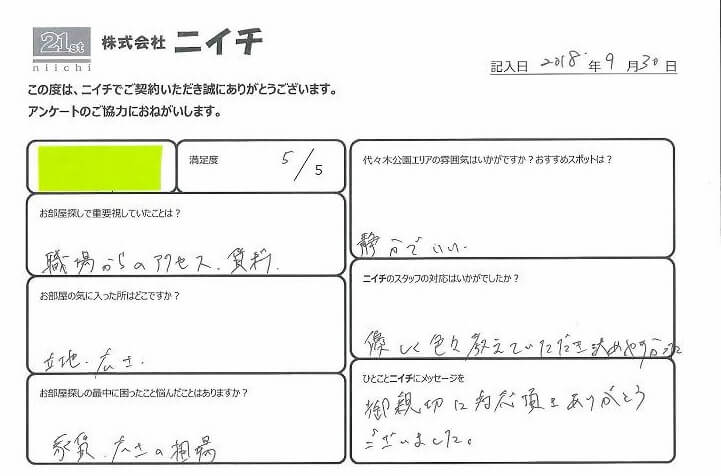 21st
niichi
株式会社 ニイチ
記入日 2018年 9月30日
この度は、ニイチでご契約いただき誠にありがとうございます。
アンケートのご協力におねがいします。
満足度 5/5
お部屋探しで重要視していたことは？
職場からのアクセス、賃料、
お部屋の気に入った所はどこですか？
立地、広さ、
お部屋探しの最中に困ったこと悩んだことはありますか？
家賃、広さの相場
代々木公園エリアの雰囲気はいかがですか？おすすめスポットは？
静かでいい、
ニイチのスタッフの対応はいかがでしたか？
優しく色々教えていただき決めやすかった
ひとことニイチにメッセージを
御親切に対応頂きありがとう
ございました。